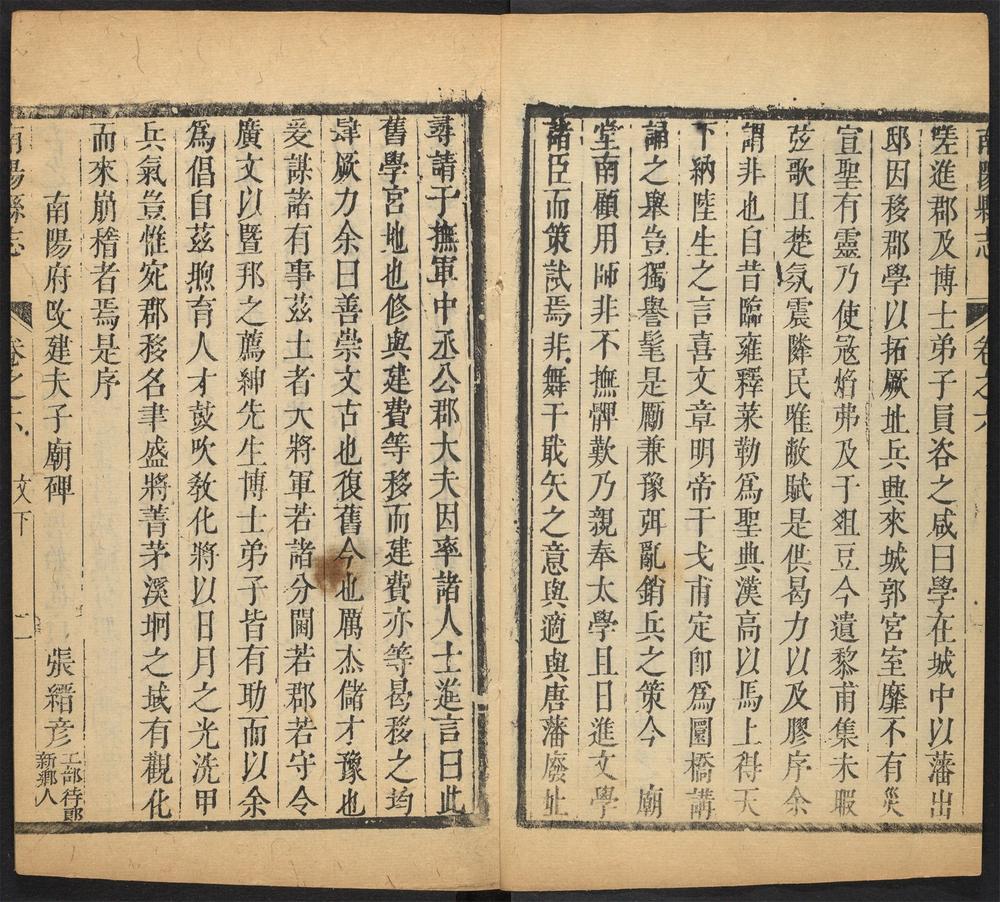 南陽縣志 卷之六
嗟進郡及博士弟子員咨之咸曰學在城中以藩出
邸因移郡學以拓厥址兵興來城郭宮室靡不有災
宣聖有靈乃使冦焰弗及于爼豆今遺黎甫集未暇
弦歌且楚氛震隣民唯敝賦是供曷力以及膠序余
謂非也自昔臨雍釋菜勒爲聖典漢高以馬上得天
下納陸生之言喜文章明帝干戈甫定卽爲圜橋講
誦之舉豈獨譽髦是勵兼豫弭亂銷兵之策今　廟
堂南顧用師非不撫髀歎乃親奉太學且日進文學
諸臣而策試焉非舞干戢矢之意與適與唐藩廢址
尋請于撫軍中丞公郡大夫因率諸人士進言曰此
舊學宮地也修與建費等移而建費亦等曷移之均
肆厥力余曰善崇文古也復舊今也厲杰儲才豫也
爰謀諸有事茲土者大將軍若諸分閫若郡若守令
廣文以暨邦之薦紳先生博士弟子皆有助而以余
爲倡自茲煦育人才鼓吹敎化將以日月之光洗甲
兵氣豈惟宛郡移名聿盛將菁茅溪坰之域有觀化
而來崩稽者焉是序
南陽府改建夫子廟碑　張縉彥 工部侍郎新鄉人
南陽縣志 卷之六 文下 二